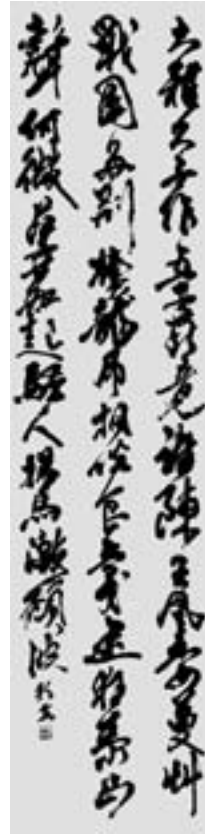 大雅久不作吾衰竟誰陳王風委蔓艸
戰國多荊榛龍虎相啖食兵戈逮狂秦正
聲何微茫哀怨起騷人揚馬激頹波